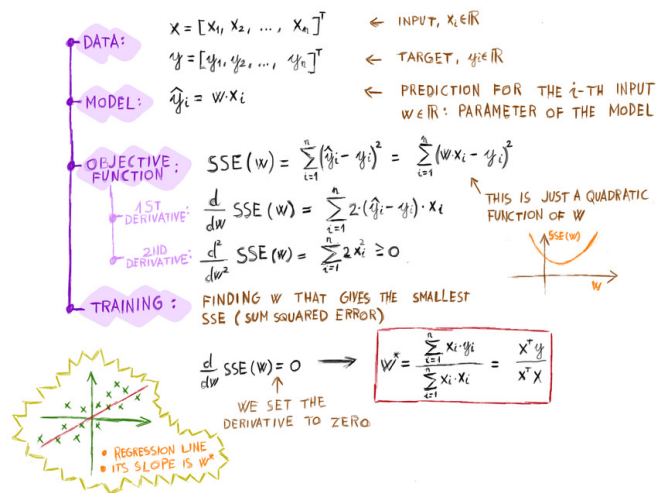 DATA:
x = [x₁, x₂, ..., xₙ]ᵀ
← INPUT, xᵢ∈ℝ
y = [y₁, y₂, ..., yₙ]ᵀ
← TARGET, yᵢ∈ℝ
MODEL:
ŷᵢ = w·xᵢ
← PREDICTION FOR THE i-TH INPUT
w∈ℝ: PARAMETER OF THE MODEL
OBJECTIVE
FUNCTION:
SSE(w) = ∑ᵢ₌₁ⁿ(ŷᵢ - yᵢ)² = ∑ᵢ₌₁ⁿ(w·xᵢ - yᵢ)²
THIS IS JUST A QUADRATIC
FUNCTION OF W
1ST
DERIVATIVE:
d/dw SSE(w) = ∑ᵢ₌₁ⁿ 2·(ŷᵢ - yᵢ)·xᵢ
2ND
DERIVATIVE:
d²/dw² SSE(w) = ∑ᵢ₌₁ⁿ 2xᵢ² ≥ 0
SSE(w)
W
TRAINING:
FINDING W THAT GIVES THE SMALLEST
SSE (SUM SQUARED ERROR)
d/dw SSE(w) = 0 → w* = ∑ᵢ₌₁ⁿ xᵢ·yᵢ / ∑ᵢ₌₁ⁿ xᵢ·xᵢ = xᵀy / xᵀx
WE SET THE
DERIVATIVE TO ZERO
• REGRESSION LINE
• ITS SLOPE IS W*